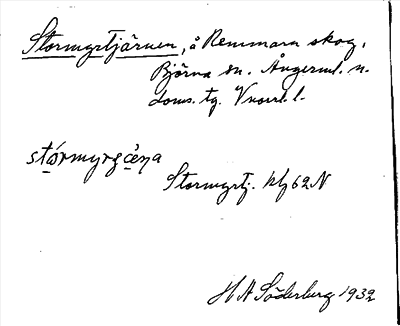 Stormyrtjärnen, å Remmarn skog,
Björna sn. Ångerml. n.
doms. tg. Vnorrl. l.
stórmyrʒɛ̀ṇa
Stormyrtj. blg 62 N
H A Söderberg 1932